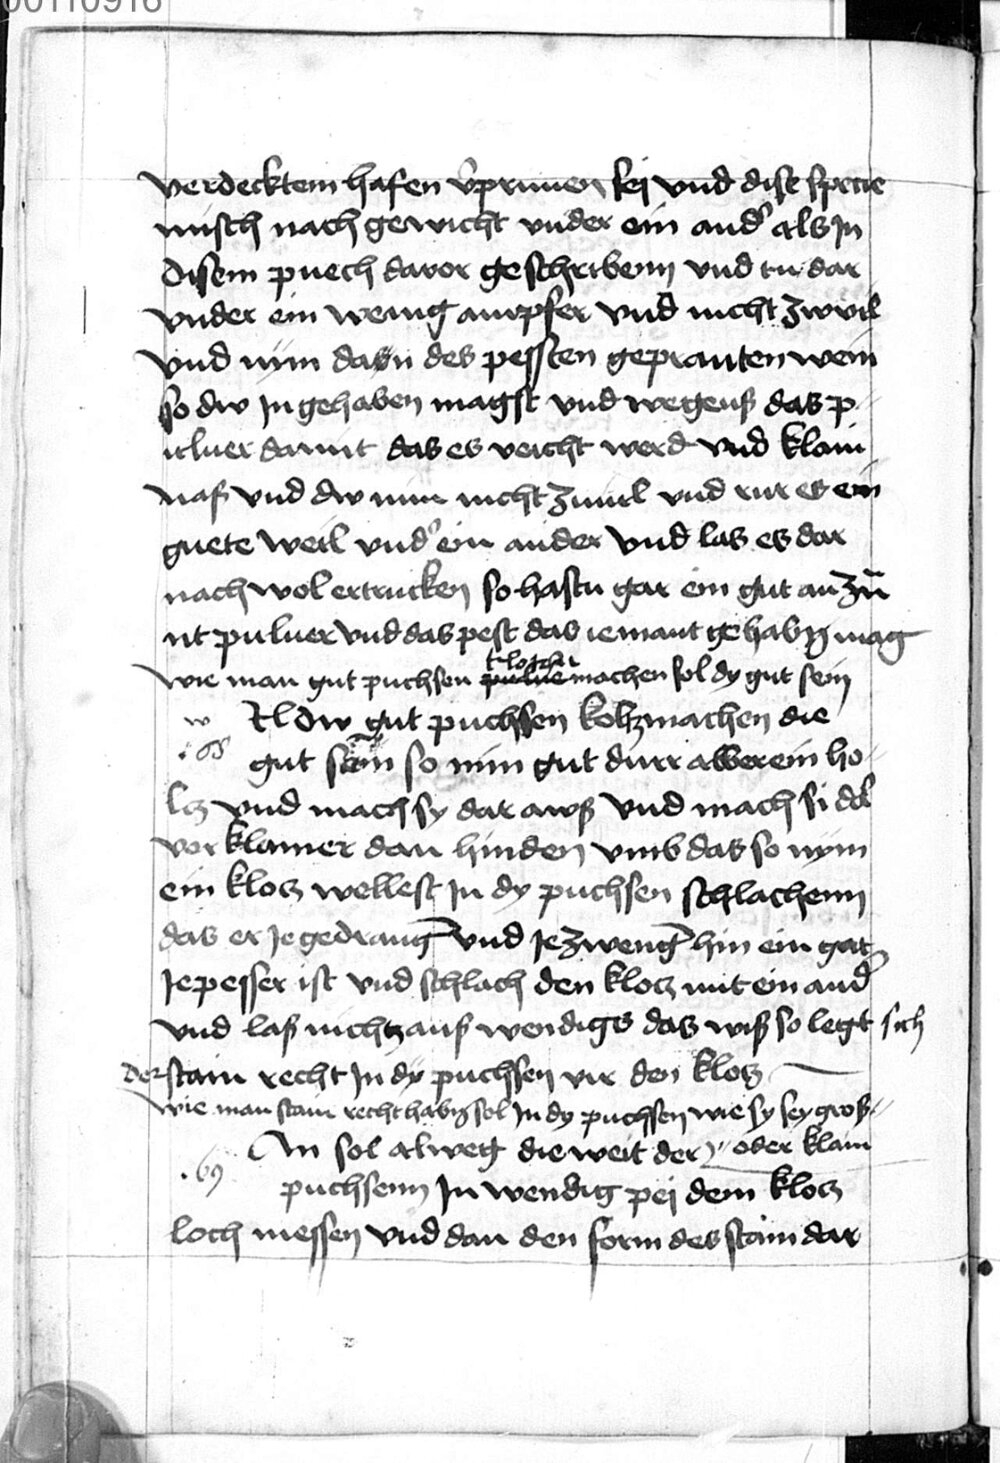 00110916
verdecktem hafen v̾prunnen sej vnd dise specie
misch nach gewicht vnder ein and̾ als In
disem puech davor geschribenn vnd tu dar
vnder ein wenig campfer vnd nicht zw vil
vnd nym dan des pessten gepranten wein
so dw In gehaben magst vnd wegeuß das p-
uluer damit das es veicht werd vnd klain
naß vnd dw nim nicht zuuil vnd rur es ein
guete weil vnd̾ ein ander vnd las es dar
nach wol ertrucken so hastu gar ein gut anzün
nt puluer vnd das pest das iemant gehabn mag
wie man gut puchsen klotzer machen sol dy gut sein
w Il dw gut puchsen kloz machen die
.68 gut sein so nim gut durr albberein ho-
lcz vnd mach sy dar awß vnd mach si all
vor klainer dan hinden vmb das so nym
ein klocz wellest In dy puchsen schlachenn
das er Ie gedrang vnd Ie zweng hin ein gat
Ie pesser ist vnd schlach den klocz mit ein and̾
vnd laß nichtz auß wendigs das wiß so legt sich
der stain recht In dy puchsen vir den klocz
wie man stain recht habn sol In dy puchsen wie sy sey gros-
An sol alweg die weit der oder klain
.69 puchsenn In wendig pej dem klocz
loch messen vnd dan den form des stain dar